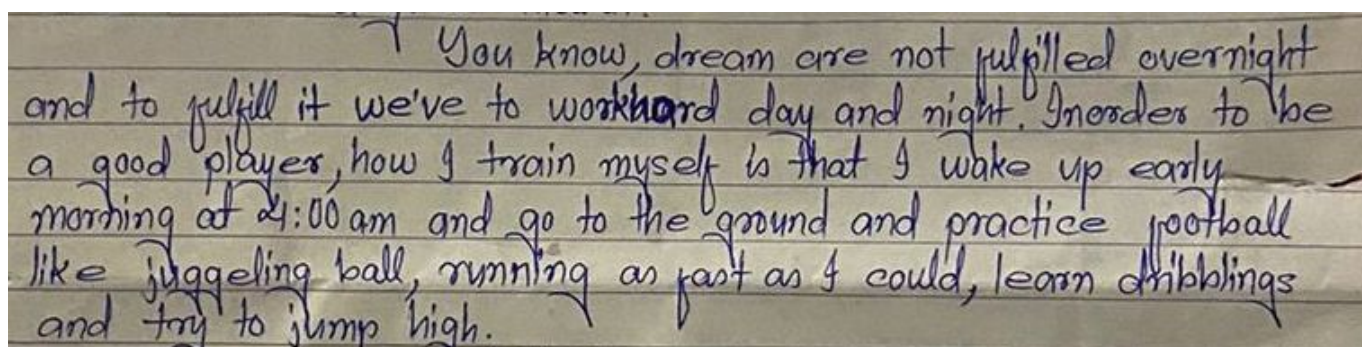 You know, dream are not fulfilled overnight
and to fulfill it we've to workhard day and night. Inorder to be
a good player, how I train myself is that I wake up early
morning at 4:00 am and go to the ground and practice football
like juggeling ball, running as fast as I could, learn dribblings
and try to jump high.